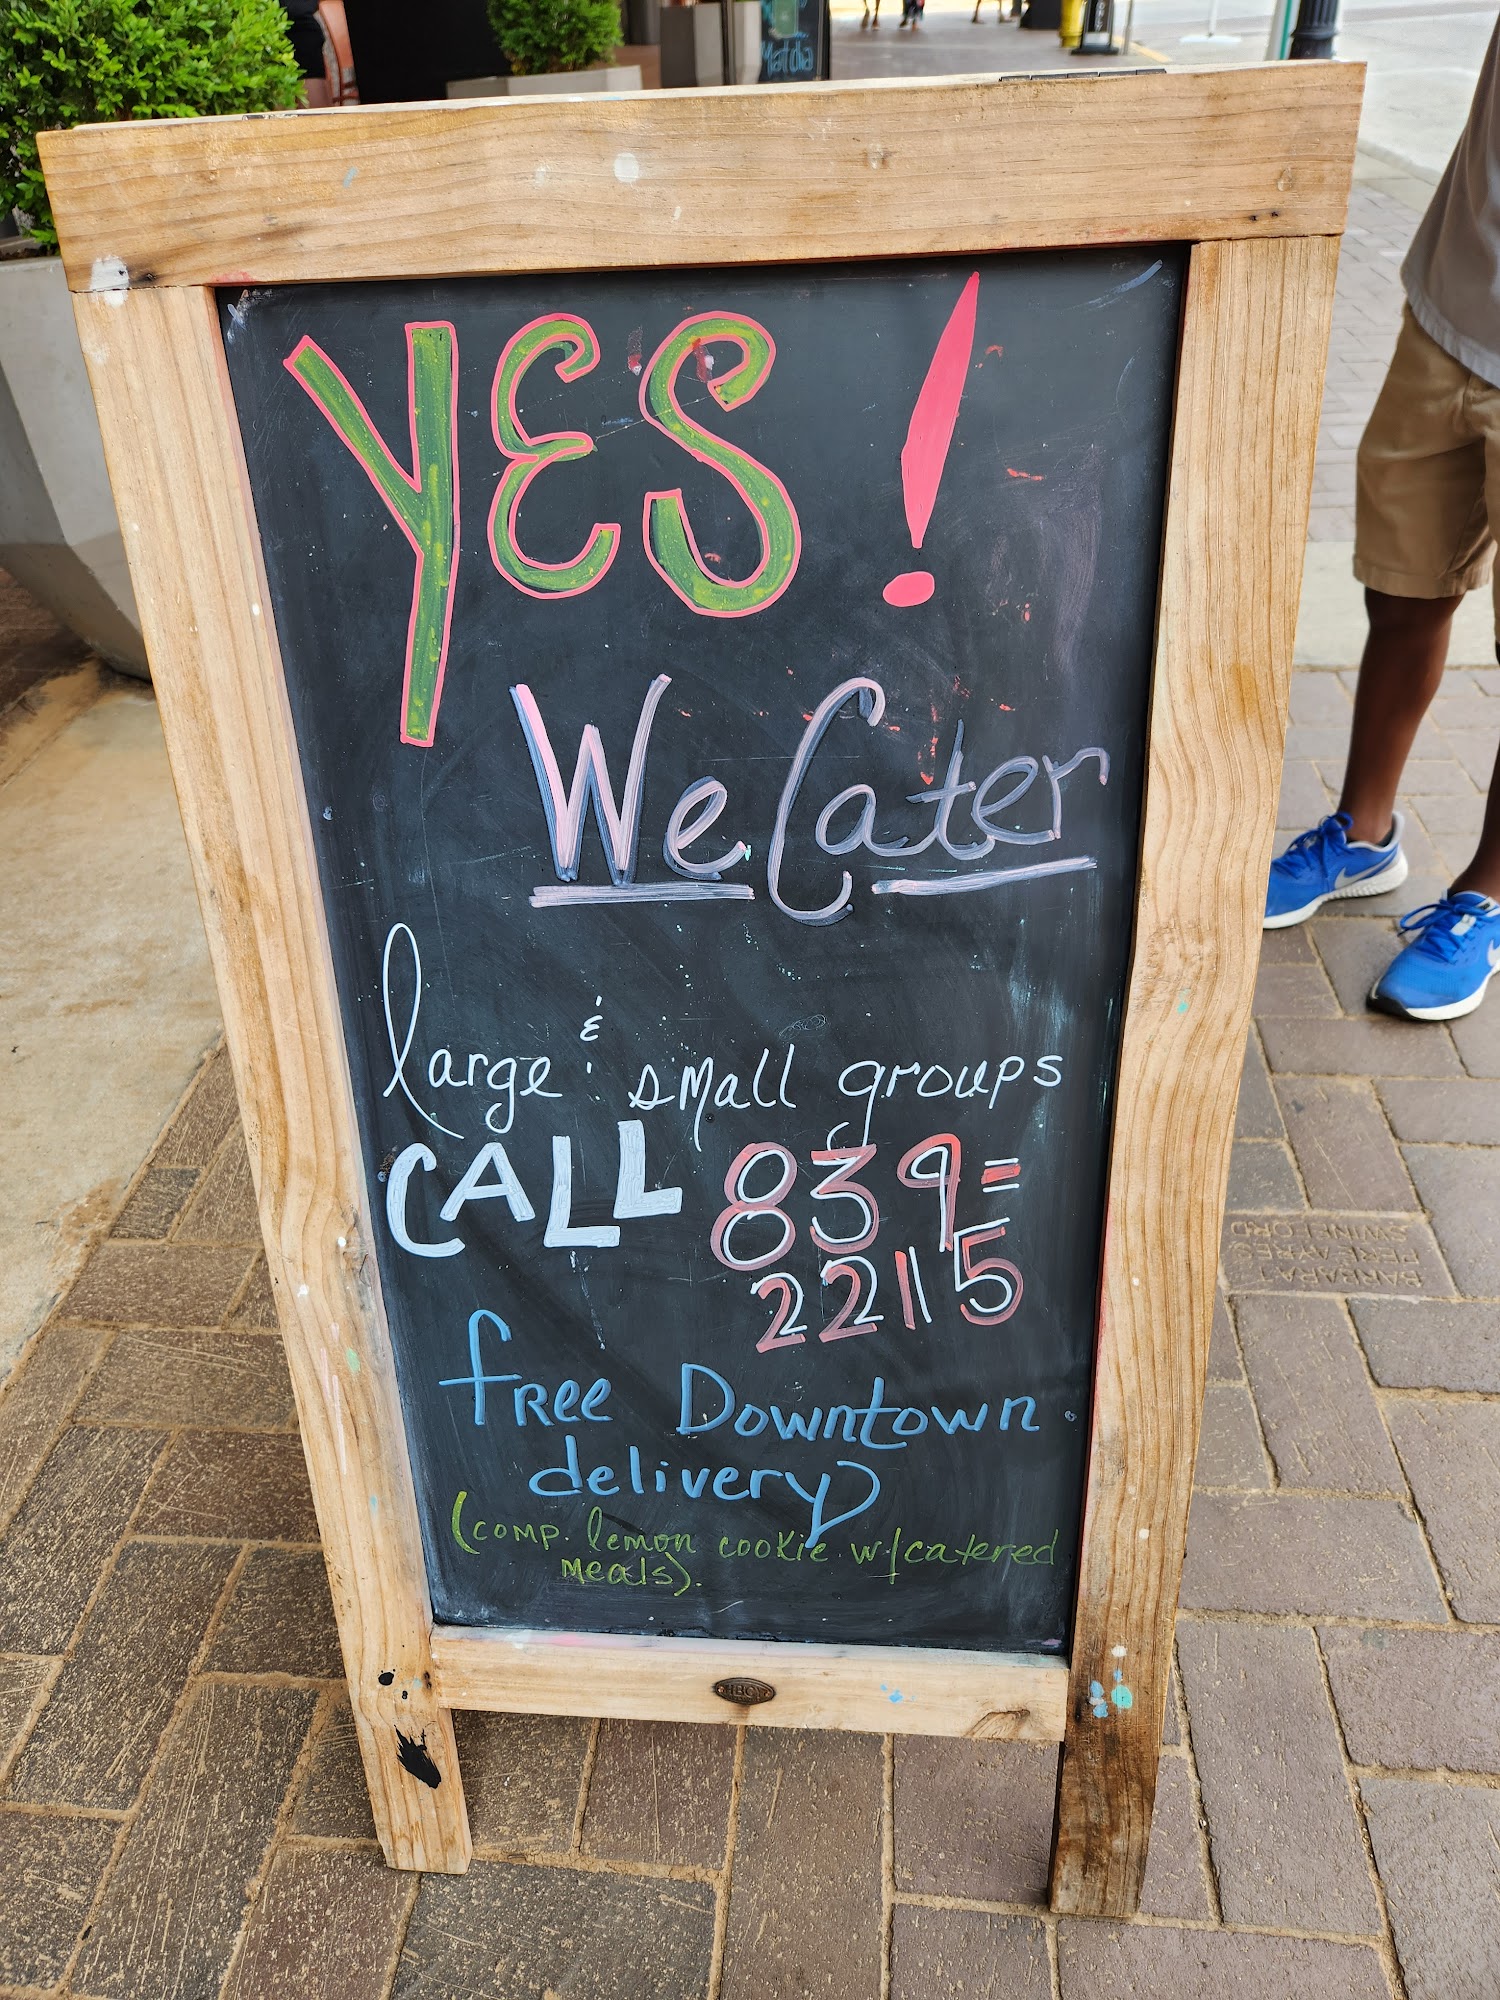 Matdia
YES!
We Cater
large & small groups
CALL 839=
2215
free Downtown
delivery
(comp. lemon cookie w/catered
meals).
BARBARA J
PERLAYRES
SWINEFORD